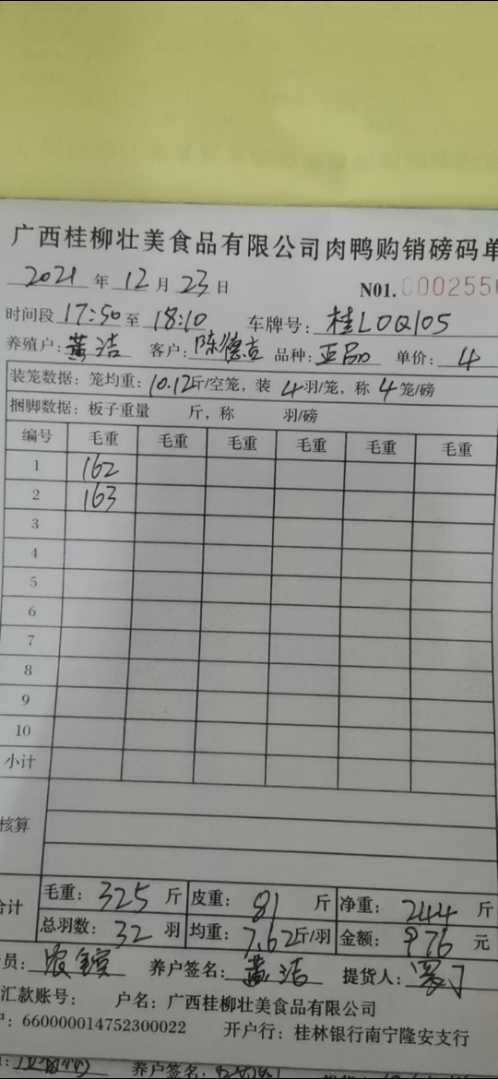 广西桂柳壮美食品有限公司肉鸭购销磅码单
2021 年 12 月 23 日 N01. 000255
时间段 17:50 至 18:10 车牌号: 桂L0Q105
养殖户: 黄洁 客户: 陈德 品种: 亚品 单价: 4
装笼数据: 笼均重: 10.12斤/空笼, 装 4羽/笼, 称 4笼/磅
捆脚数据: 板子重量 斤, 称 羽/磅
编号 毛重 毛重 毛重 毛重 毛重 毛重
1 162
2 163
3
4
5
6
7
8
9
10
小计
核算
合计 毛重: 325 斤 皮重: 81 斤 净重: 244 斤
总羽数: 32 羽 均重: 7.62斤/羽 金额: 976 元
员: 养户签名: 黄洁 提货人:
汇款账号: 户名: 广西桂柳壮美食品有限公司
: 660000014752300022 开户行: 桂林银行南宁隆安支行
养户签名: